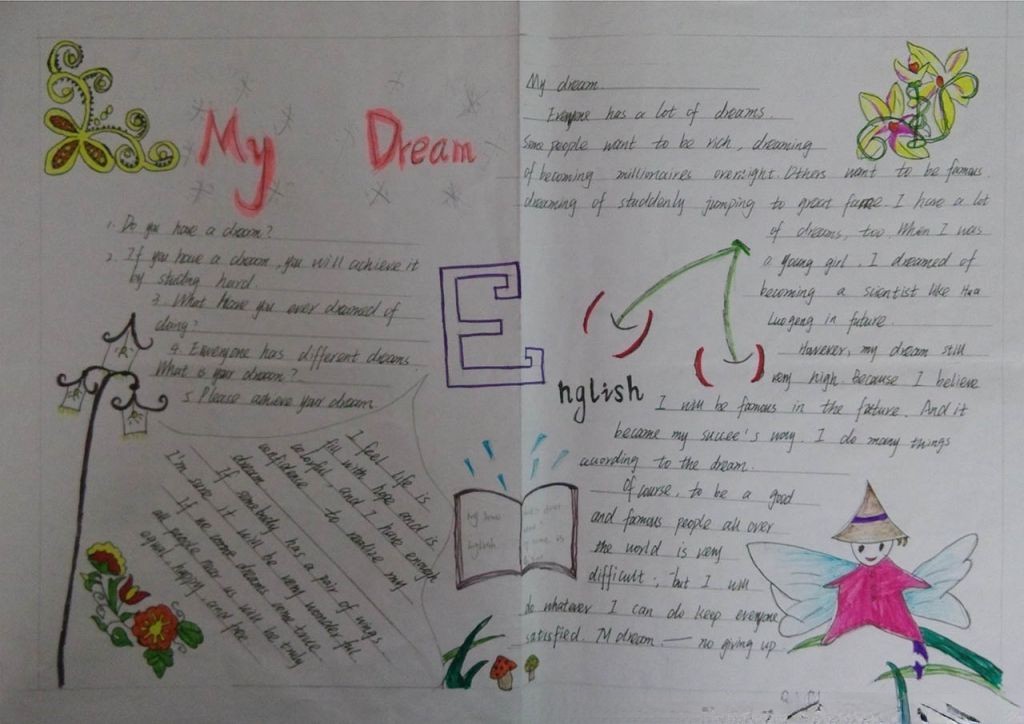 My Dream
1. Do you have a dream?
2. If you have a dream, you will achieve it
by studing hard.
3. What have you ever dreamed of
doing?
4. Everyone has different dreams.
What is your dream?
5 Please achieve your dream
I feel life is
fill with hope and is
colorful, and I have enough
confidence to realize my
dream.
If somebody has a pair of wings
I'm sure it will be very wonderful
If we some dreams come true
all people near us will be truly
equal, happy and free
English
My dream
Everyone has a lot of dreams.
Some people want to be rich, dreaming
of becoming millionaires overnight. Others want to be famous
dreaming of studdenly jumping to great fame. I have a lot
of dreams, too. When I was
a young girl, I dreamed of
becoming a scientist like Hua
Luogeng in future.
However, my dream still
very high. Because I believe
I will be famous in the future. And it
became my succee's way. I do many things
according to the dream.
Of course, to be a good
and famous people all over
the world is very
difficult, but I will
do whatever I can do keep everyone
satisfied. M dream — no giving up